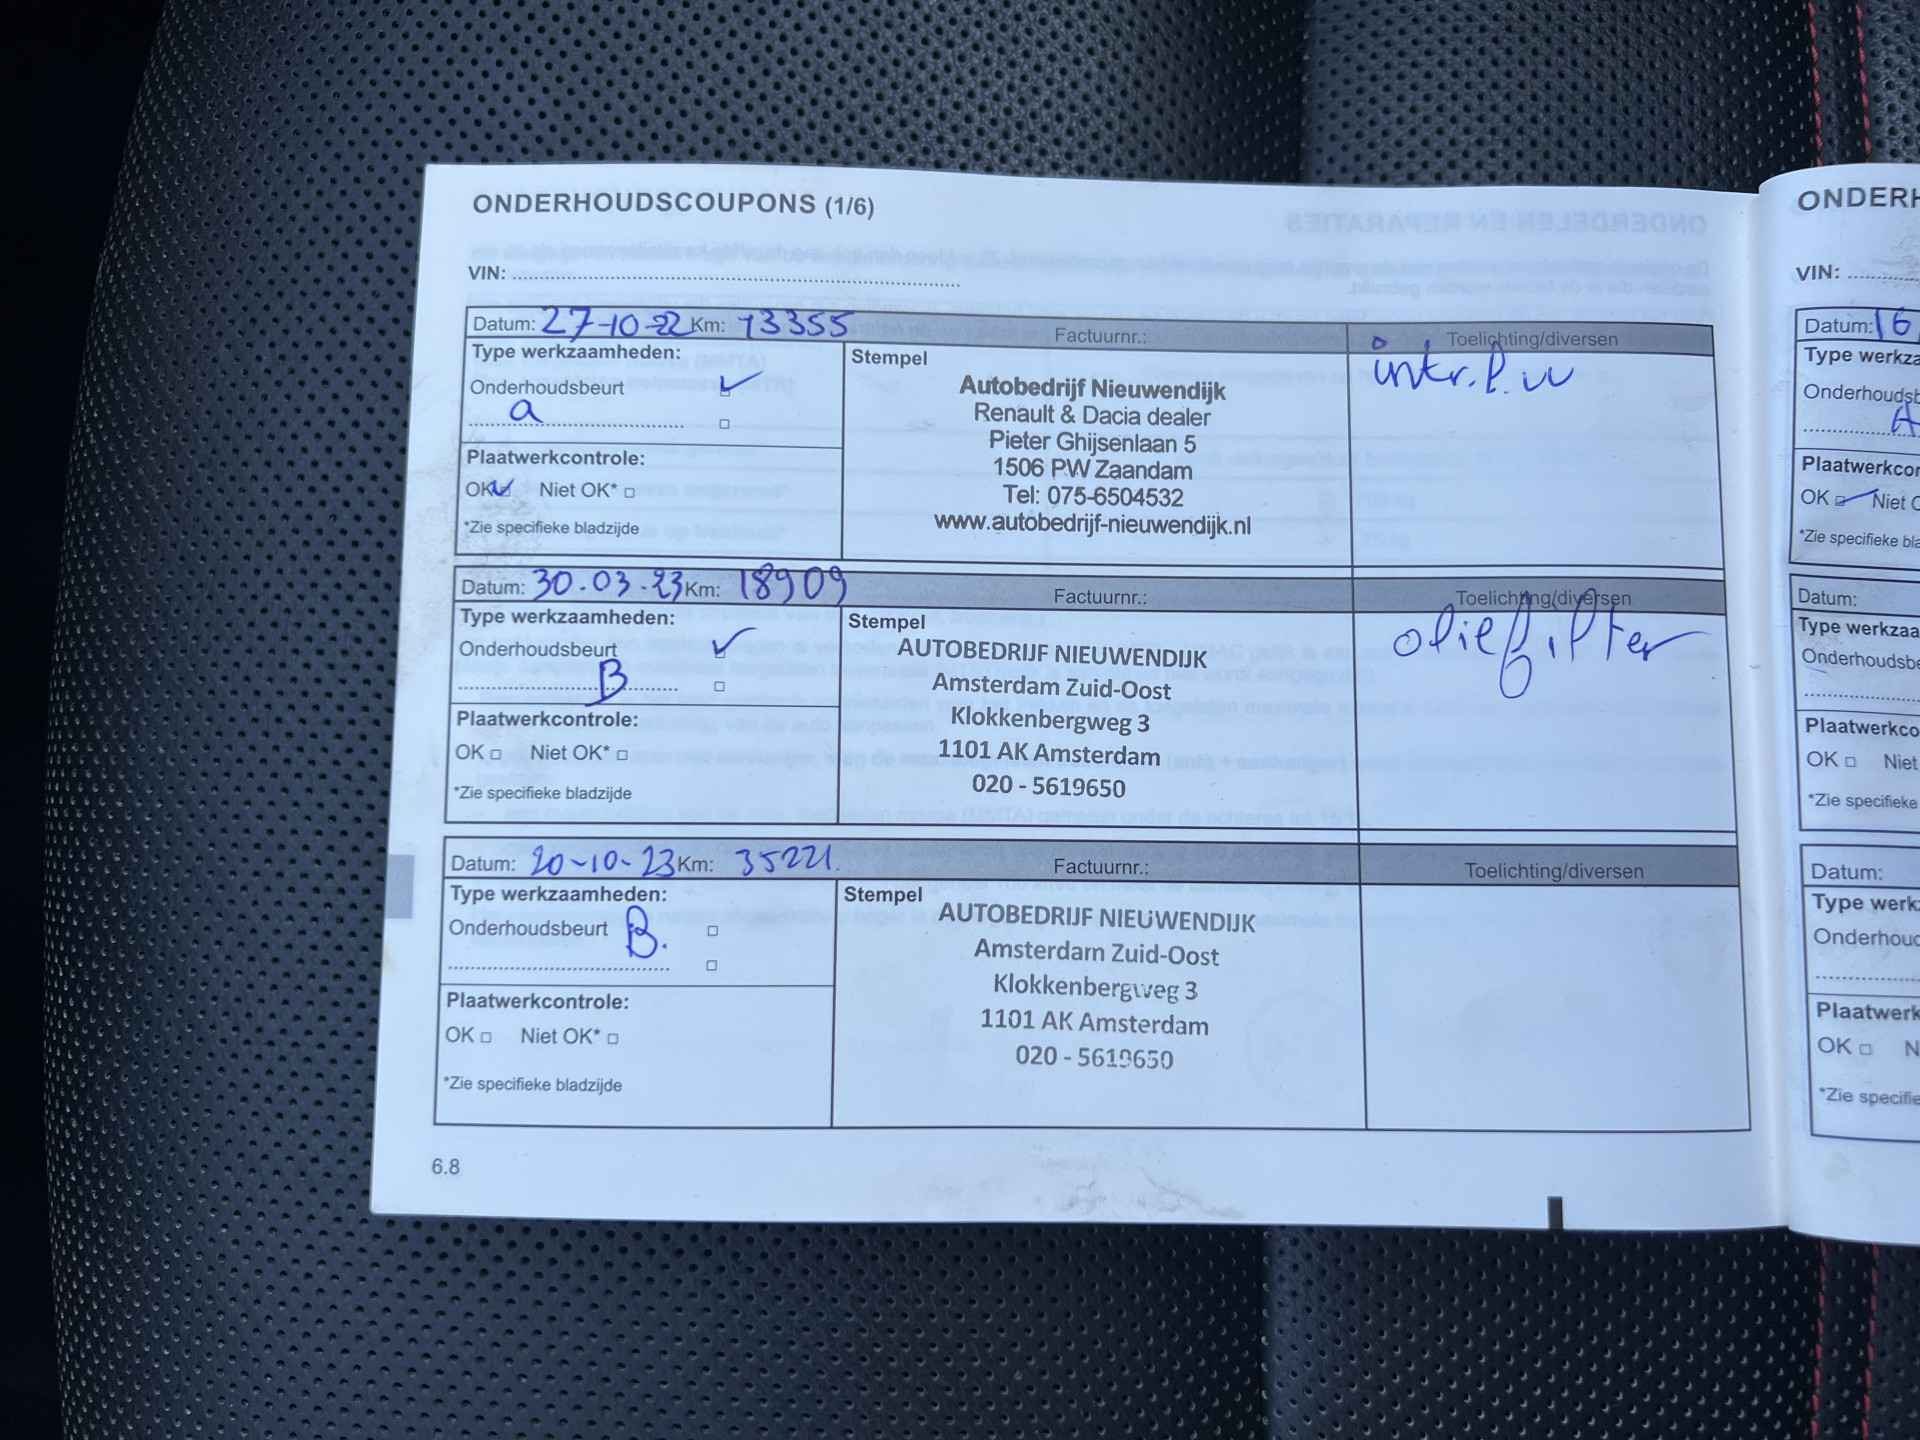 ONDERHOUDSCOUPONS (1/6)
VIN:
Datum: 27-10-22 Km: 13355 Factuurnr.: Toelichting/diversen
Type werkzaamheden:
Stempel
Onderhoudsbeurt
a
Plaatwerkcontrole:
OK Niet OK*
*Zie specifieke bladzijde
Autobedrijf Nieuwendijk
Renault & Dacia dealer
Pieter Ghijsenlaan 5
1506 PW Zaandam
Tel: 075-6504532
www.autobedrijf-nieuwendijk.nl
Datum: 30-03-23 Km: 18909 Factuurnr.: Toelichting/diversen
Type werkzaamheden:
Stempel
Onderhoudsbeurt
B
Plaatwerkcontrole:
OK Niet OK*
*Zie specifieke bladzijde
AUTOBEDRIJF NIEUWENDIJK
Amsterdam Zuid-Oost
Klokkenbergweg 3
1101 AK Amsterdam
020 - 5619650
oliefilter
Datum: 20-10-23 Km: 35221. Factuurnr.: Toelichting/diversen
Type werkzaamheden:
Stempel
Onderhoudsbeurt B.
Plaatwerkcontrole:
OK Niet OK*
*Zie specifieke bladzijde
AUTOBEDRIJF NIEUWENDIJK
Amsterdam Zuid-Oost
Klokkenbergweg 3
1101 AK Amsterdam
020 - 5619650
6.8
ONDERH
VIN:
Datum: 16
Type werkza
Onderhoudsb
A
Plaatwerkcor
OK Niet O
*Zie specifieke bla
Datum:
Type werkzaa
Onderhoudsbe
Plaatwerkco
OK Niet
*Zie specifieke
Datum:
Type werkz
Onderhoud
Plaatwerk
OK N
*Zie specifie